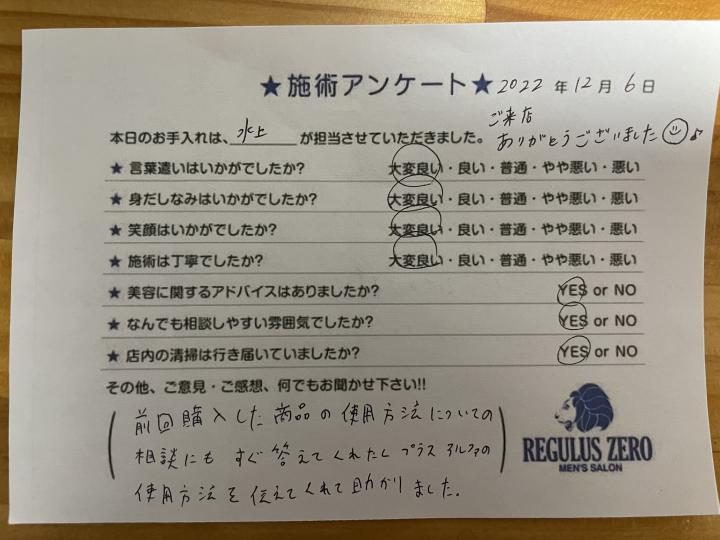 ★施術アンケート★ 2022 年 12 月 6 日
ご来店
本日のお手入れは、水上が担当させていただきました。 ありがとうございました☺♪
★ 言葉遣いはいかがでしたか? 大変良い・良い・普通・やや悪い・悪い
★ 身だしなみはいかがでしたか? 大変良い・良い・普通・やや悪い・悪い
★ 笑顔はいかがでしたか? 大変良い・良い・普通・やや悪い・悪い
★ 施術は丁寧でしたか? 大変良い・良い・普通・やや悪い・悪い
★ 美容に関するアドバイスはありましたか? YES or NO
★ なんでも相談しやすい雰囲気でしたか? YES or NO
★ 店内の清掃は行き届いていましたか? YES or NO
その他、ご意見・ご感想、何でもお聞かせ下さい!!
前回購入した商品の使用方法についての
相談にもすぐ答えてくれたしプラスアルファの
使用方法を伝えてくれて助かりました。
REGULUS ZERO
MEN'S SALON